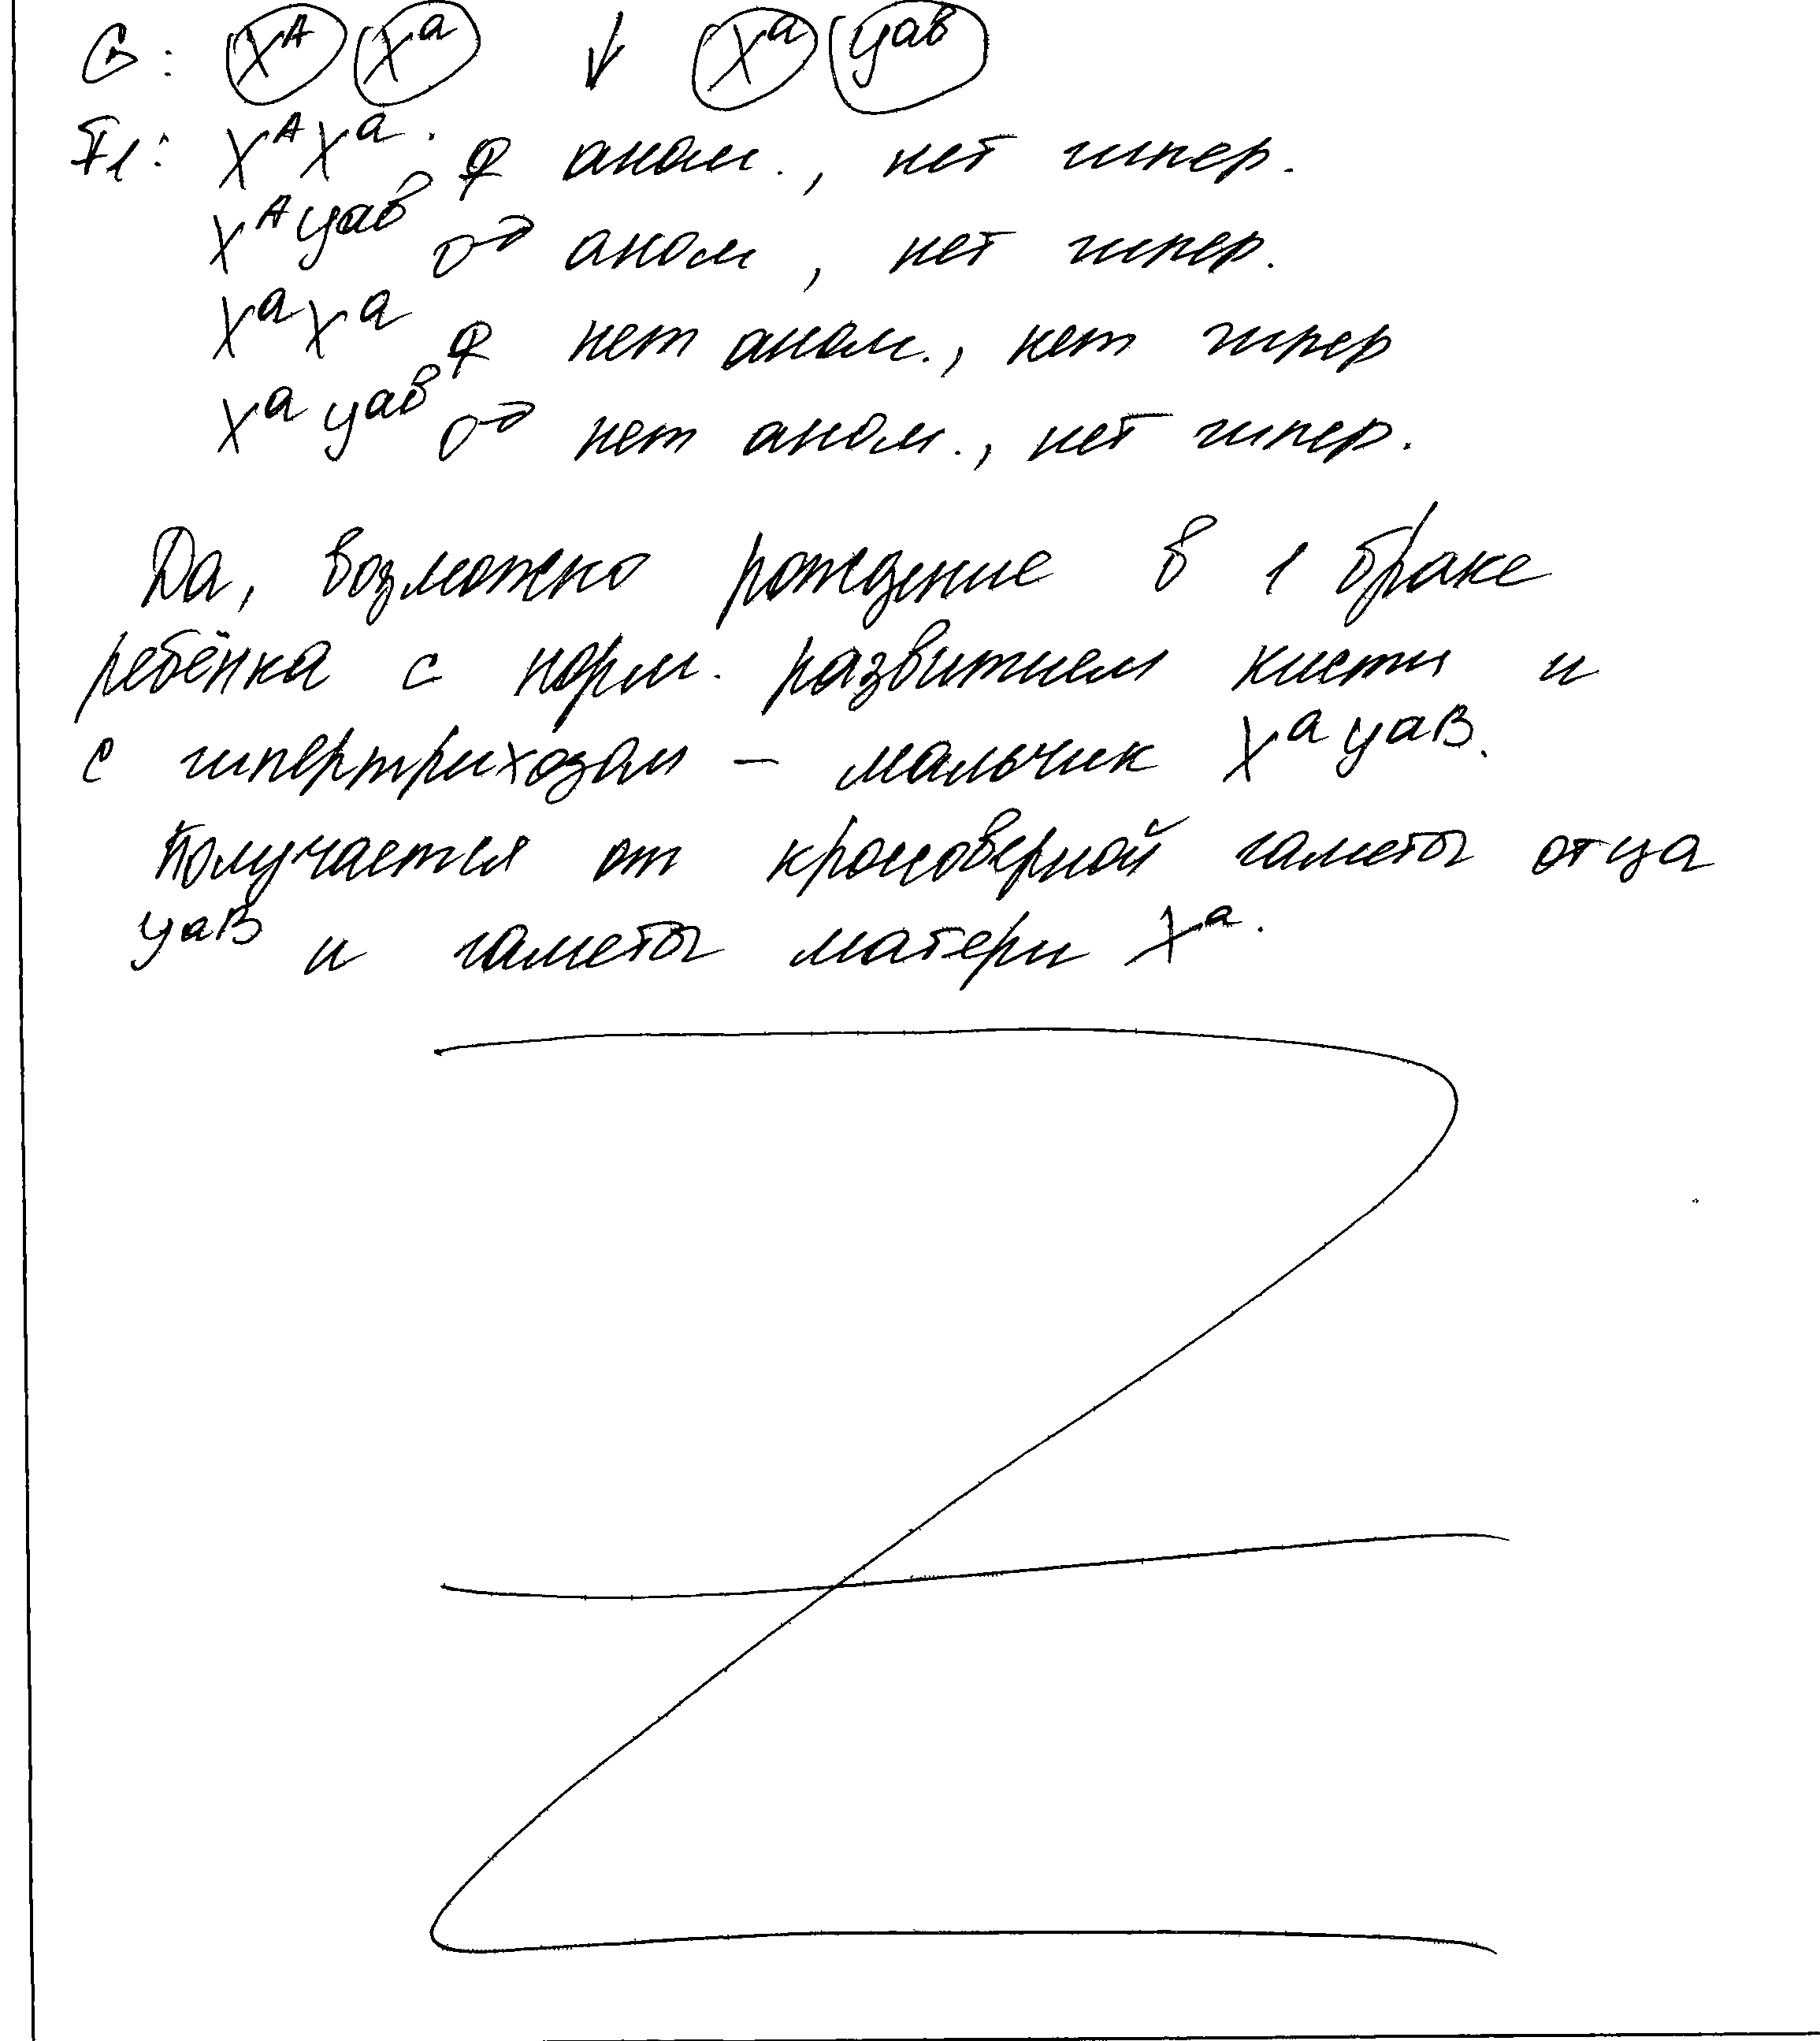 G: X^A X^a ↓ X^a Y^ab
F1: X^A X^a. ♀ аном., нет гипер.
X^A Y^ab ♂ аном, нет гипер.
X^a X^a ♀ нет аном., нет гипер
X^a Y^ab ♂ нет аном., нет гипер.
Да, возможно рождение в 1 браке
ребёнка с норм. развитием кисти и
с гипертрихозом – мальчик X^a Y^aB.
Получается от кроссоверной гаметы отца
Y^aB и гаметы матери X^a.